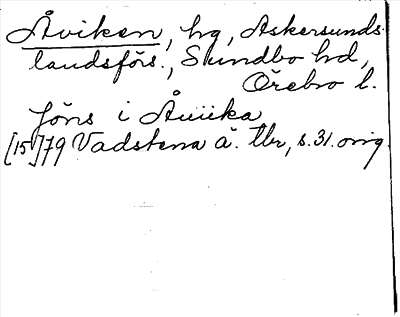 Åviken, hg, Askersunds-
landsförs., Sundbo hd,
Örebro l.
Jöns i Åuiika
[15]79 Vadstena ä. tbr, s. 31. orig.